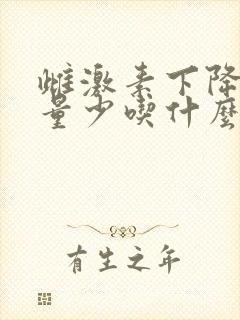 雌激素下降
量少喫什麼
有生之年